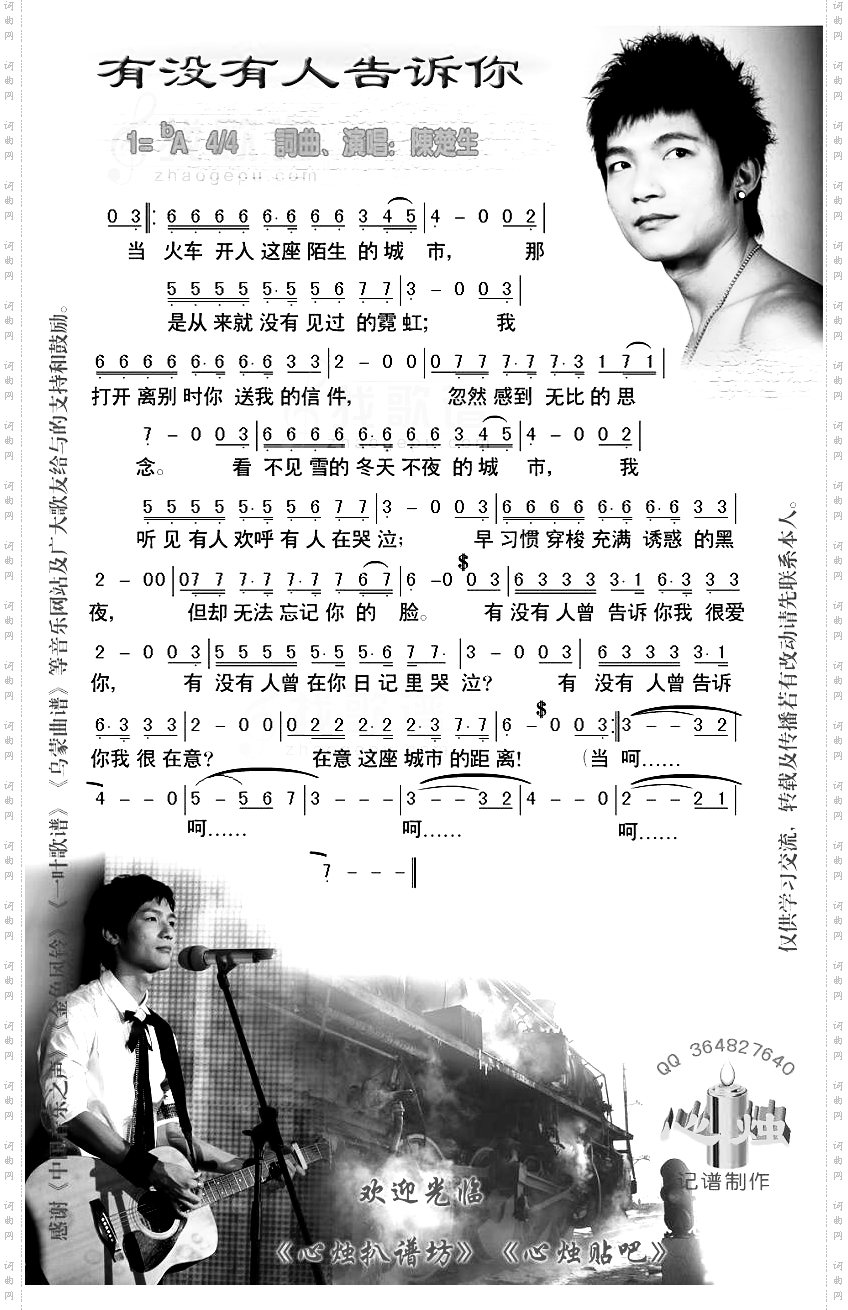 有没有人告诉你
1= ♭A 4/4 詞曲、演唱：陳楚生
zhaogepu.com
0 3 ‖: 6 6 6 6 6· 6 6 6 3 4 5 | 4 - 0 0 2 |
当 火车 开人 这座 陌生 的城 市， 那
5 5 5 5 5· 5 5 6 7 7 | 3 - 0 0 3 |
是从 来就 没有 见过 的霓 虹； 我
6 6 6 6 6· 6 6· 6 3 3 | 2 - 0 0 | 0 7 7 7· 7 7· 3 1 7 1 |
打开 离别 时你 送我 的信 件， 忽然 感到 无比 的 思
7 - 0 0 3 | 6 6 6 6 6· 6 6 6 3 4 5 | 4 - 0 0 2 |
念。 看 不见 雪的 冬天 不夜 的城 市， 我
5 5 5 5 5· 5 5 6 7 7 | 3 - 0 0 3 | 6 6 6 6 6· 6 6· 6 3 3 |
听见 有人 欢呼 有人 在哭 泣； 早 习惯 穿梭 充满 诱惑 的黑
2 - 0 0 | 0 7 7 7· 7 7· 7 7 6 7 | 6 - 0 0 3 | 6 3 3 3 3· 1 6· 3 3 3
夜， 但却 无法 忘记 你 的 脸。 有 没有 人曾 告诉 你我 很爱
2 - 0 0 3 | 5 5 5 5 5· 5 5· 6 7 7· | 3 - 0 0 3 | 6 3 3 3 3· 1
你， 有 没有 人曾 在你 日记 里哭 泣？ 有 没有 人曾 告诉
6· 3 3 3 | 2 - 0 0 | 0 2 2 2· 2 2· 3 7· 7 | 6 - 0 0 3 :‖ 3 - - 3 2 |
你我 很在 意？ 在意 这座 城市 的距 离！ （当 呵……
4 - - 0 | 5 - 5 6 7 | 3 - - - | 3 - - 3 2 | 4 - - 0 | 2 - - 2 1 |
呵…… 呵…… 呵……
7 - - - ‖
感谢《中国音乐之声》《金色风铃》《一叶歌谱》《乌蒙曲谱》等音乐网站及广大歌友给与的支持和鼓励。
仅供学习交流，转载及传播若有改动请先联系本人。
QQ 364827640
心烛
记谱制作
欢迎光临
《心烛扒谱坊》《心烛贴吧》